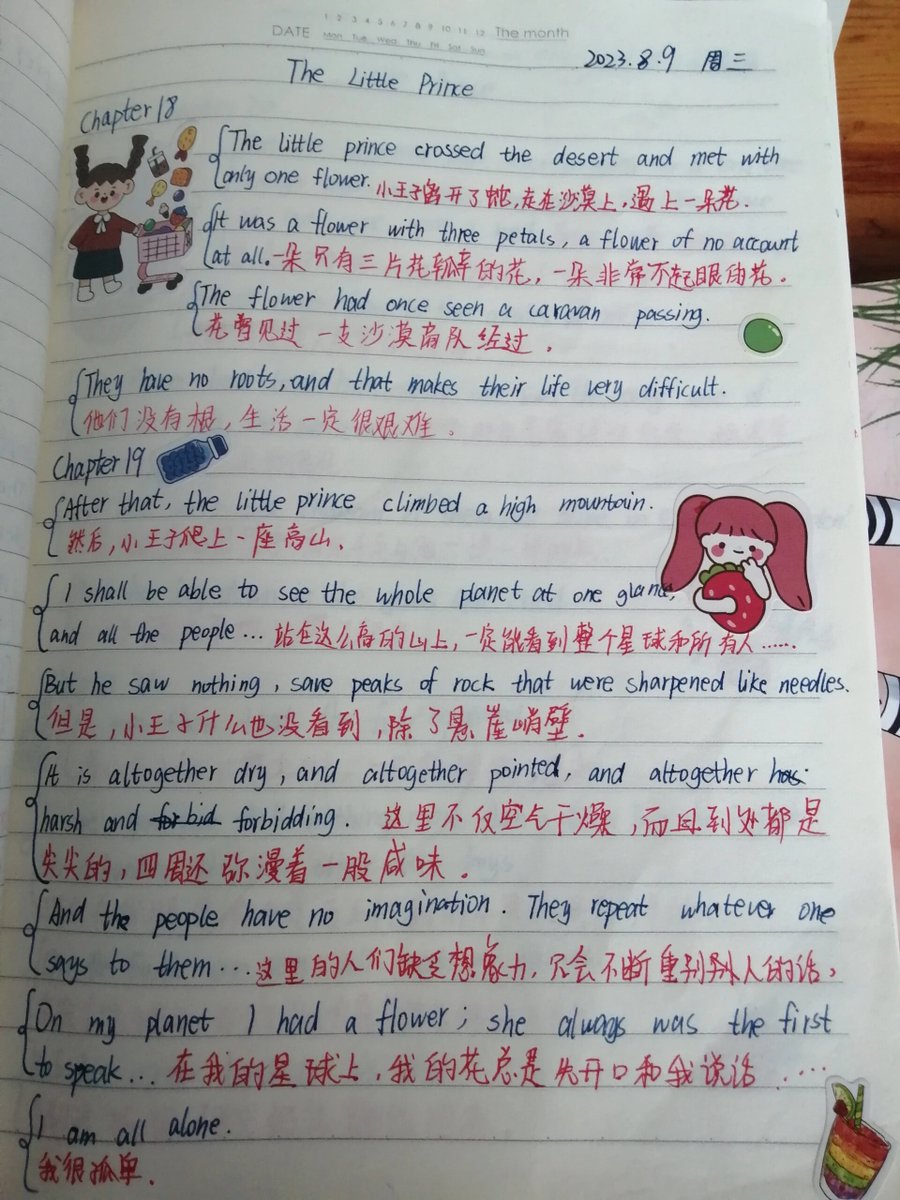 1 2 3 4 5 6 7 8 9 10 11 12
DATE Mon Tue Wed Thu Fri Sat Sun The month
2023.8.9 周三
The Little Prince
Chapter 18
The little prince crossed the desert and met with
only one flower. 小王子离开了蛇,走在沙漠上,遇上一朵花.
It was a flower with three petals, a flower of no account
at all. 一朵只有三片花瓣的花,一朵非常不起眼的花.
The flower had once seen a caravan passing.
花曾见过一支沙漠商队经过.
They have no roots, and that makes their life very difficult.
他们没有根,生活一定很艰难.
Chapter 19
After that, the little prince climbed a high mountain.
然后,小王子爬上一座高山.
I shall be able to see the whole planet at one glance,
and all the people... 站在这么高的山上,一定能看到整个星球和所有人......
But he saw nothing, save peaks of rock that were sharpened like needles.
但是,小王子什么也没看到,除了悬崖峭壁.
It is altogether dry, and altogether pointed, and altogether has
harsh and forbid forbidding. 这里不仅空气干燥,而且到处都是
尖尖的,四周还弥漫着一股咸味.
And the people have no imagination. They repeat whatever one
says to them... 这里的人们缺乏想象力,只会不断重别别人的话,
On my planet I had a flower; she always was the first
to speak... 在我的星球上,我的花总是先开口和我说话......
I am all alone.
我很孤单.